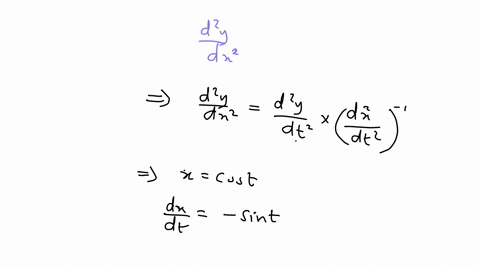 d²y/dx²
⇒ d²y/dx² = d²y/dt² × (d²x/dt²)⁻¹
⇒ x = cost
dx/dt = -sint